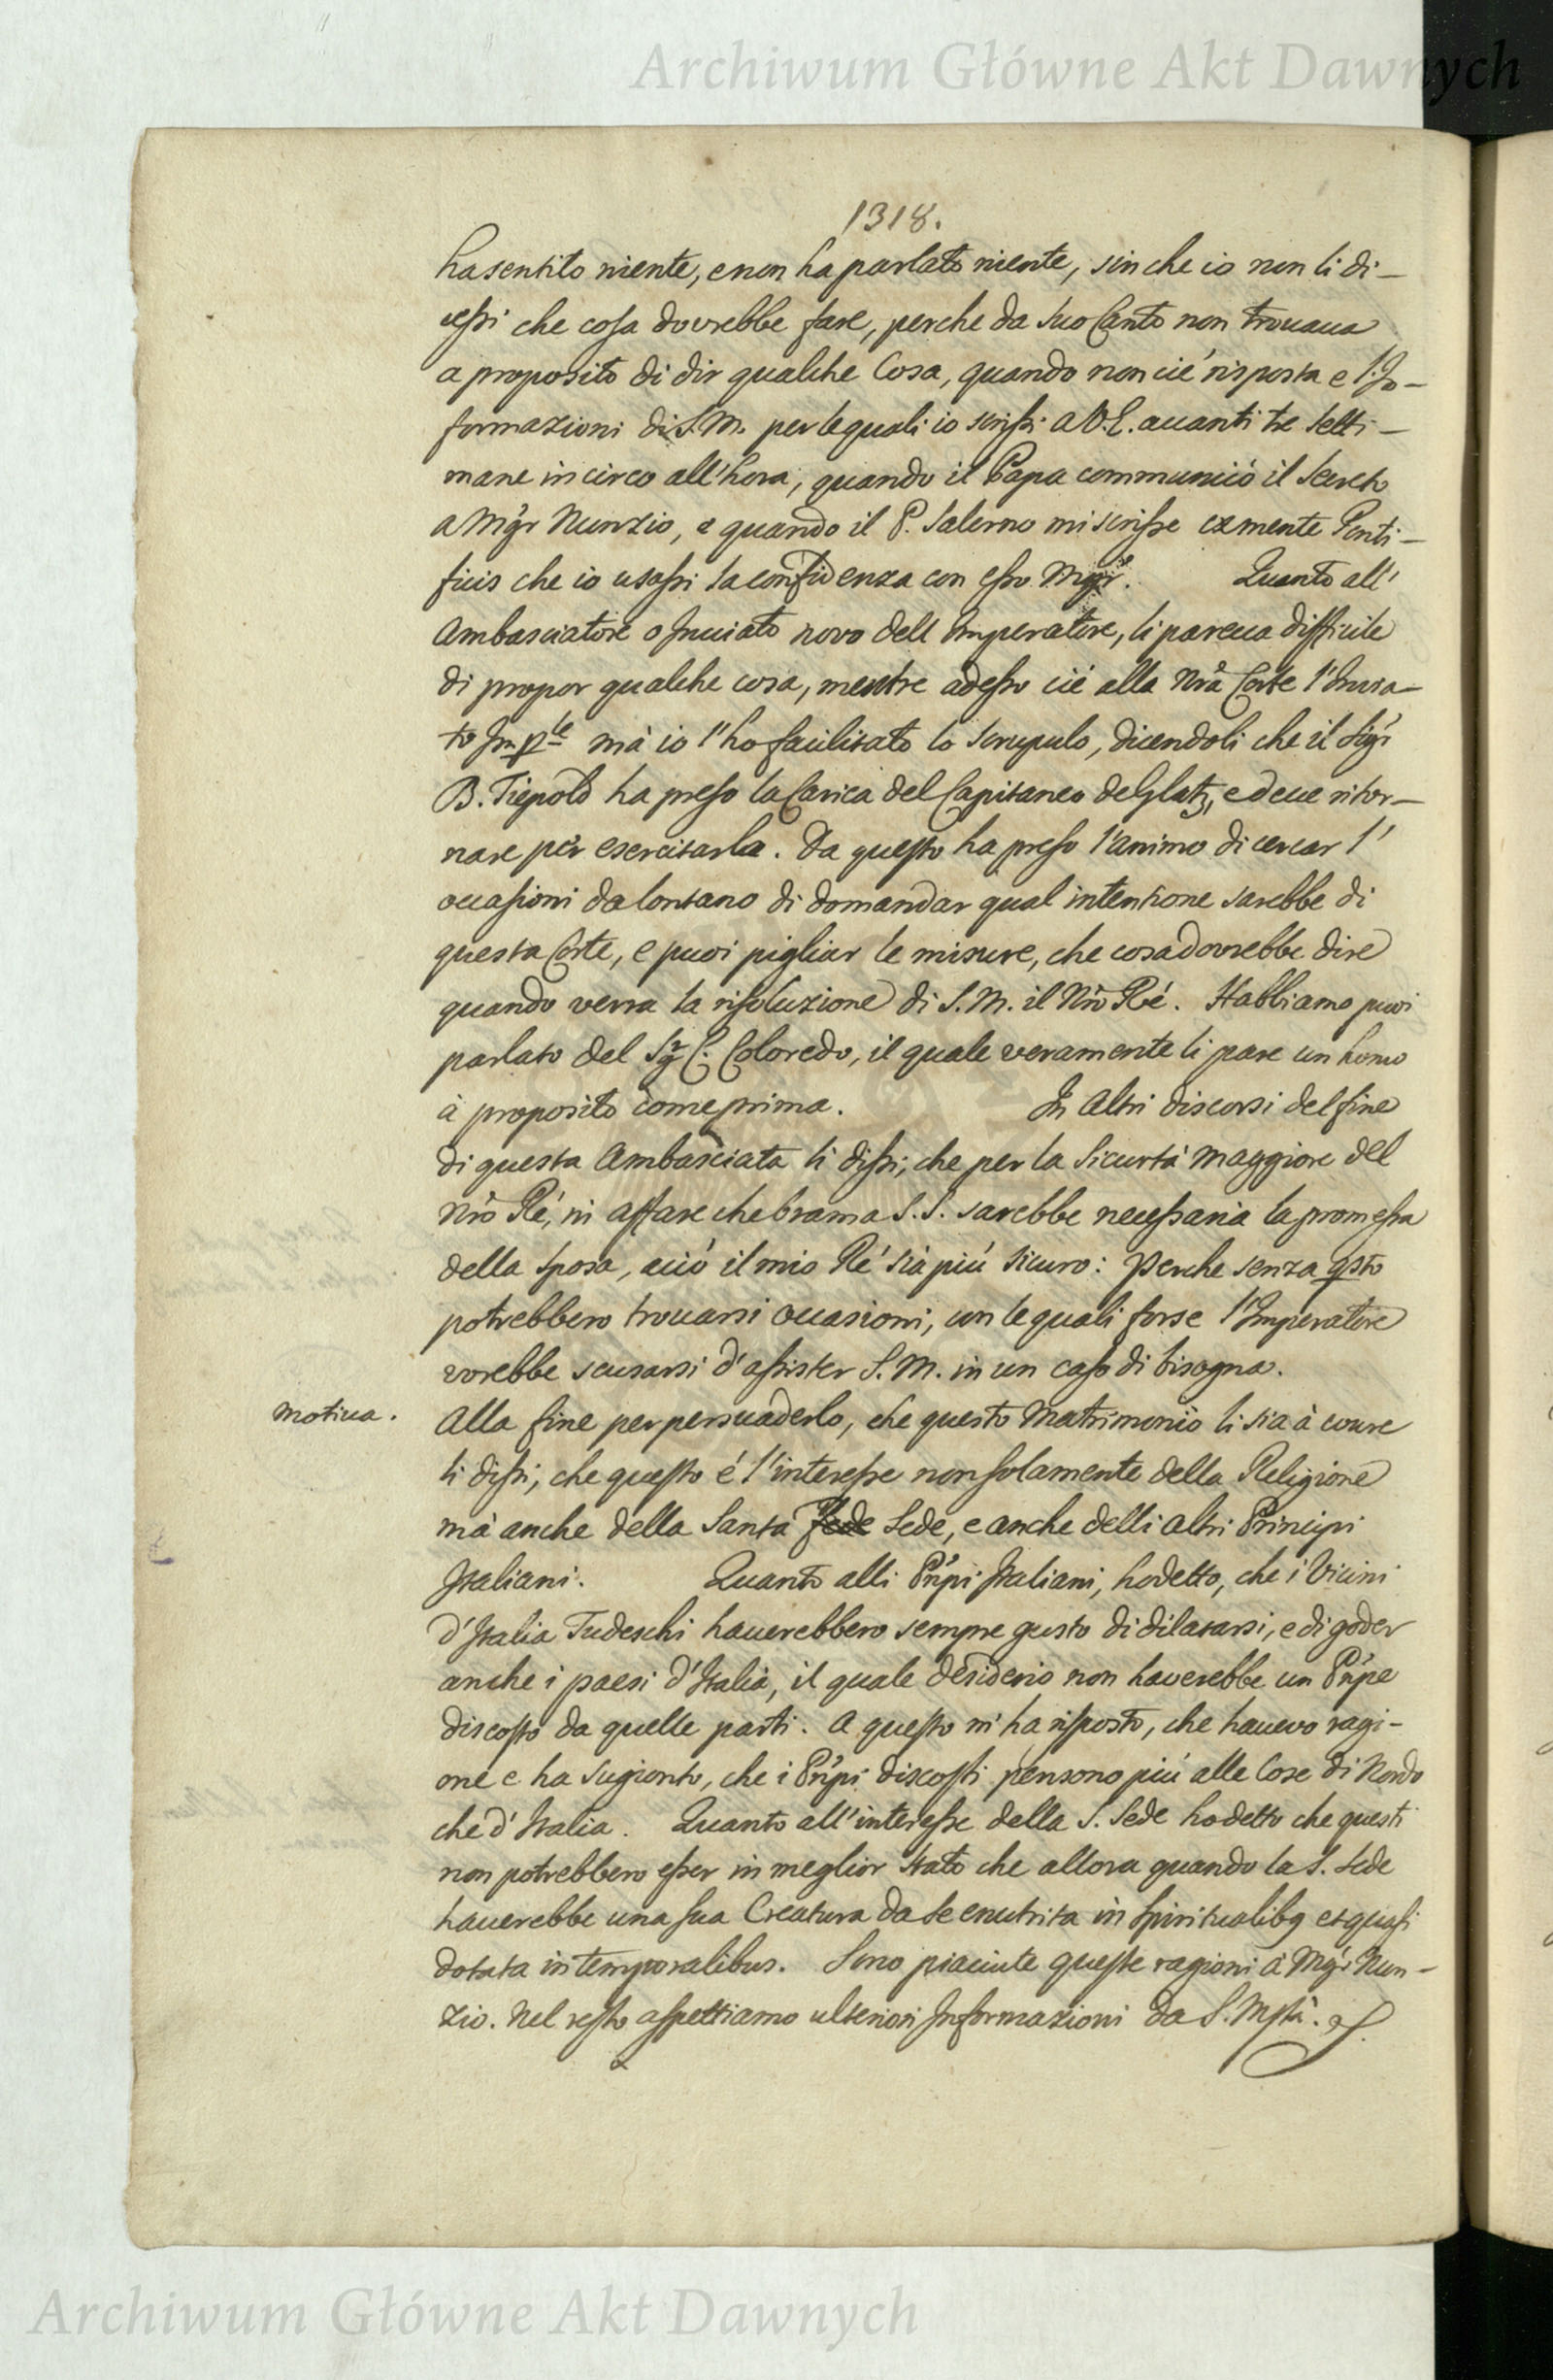 Archiwum Główne Akt Dawnych
1318.
ha sentito niente, e non ha parlato niente, sin che io non li di-
cessi che cosa dovrebbe fare, perche da suo Canto non trouaua
a proposito di dir qualche Cosa, quando non cié risposta e l'In-
formazioni di S. M. per le quali io scrissi a V. E. auanti tre setti-
mane in circo all'hora, quando il Papa communicò il secreto
a Mgr Nunzio, e quando il P. Salerno mi scrisse ex mente Ponti-
ficis che io usassi la confidenza con esso Mgr. Quanto all'
Ambasciatore o Inuiato novo dell Imperatore, li pareua difficile
di propor qualche cosa, mentre adesso cié alla nrã Corte l'Inuia-
to Imp.le mà io l'ho facilitato lo scrupulo, dicendoli che il Sigr
B. Tiepold ha preso la Carica del Capitaneo de Glatz, e deue ritor-
nare per esercitarla. Da questo ha preso l'animo di cercar l'
occasioni da lontano di domandar qual intentione sarebbe di
questa Corte, e puoi pigliar le misure, che cosa dovrebbe dire
quando verra la risoluzione di S. M. il Nrõ Ré. Habbiamo puoi
parlato del Sgr C. Coloredo, il quale veramente li pare un homo
à proposito come prima. In Altri discorsi del fine
di questa Ambasciata li dissi, che per la Sicurtà maggiore del
nrõ Ré, in affare che brama S. S. sarebbe necessaria la promessa
della Sposa, acciò il mio Ré sia più sicuro: perche senza qsto
potrebbero trouarsi occasioni, con le quali forse l'Imperatore
vorebbe scusarsi d'assister S. M. in un caso di bisogna.
motiua. Alla fine per persuaderlo, che questo Matrimonio li sia à coure
li dissi, che questo é l'interesse non solamente della Religione
mà anche della Santa Fede Sede, e anche delli altri Principi
Italiani. Quanto alli Prĩpi Italiani, ho detto, che i Vicini
d'Italia Tudeschi hauerebbero sempre gusto di dilatarsi, e di goder
anche i paesi d'Italia, il quale desiderio non haverebbe un Prĩpe
discosto da quelle parti. A questo m'ha risposto, che hauevo ragi-
one e ha sugionto, che i Prĩpi discosti pensono più alle Cose di Nordo
che d'Italia. Quanto all'interesse della S. Sede ho detto che questi
non potrebbero esser in meglior stato che allora quando la S. Sede
hauerebbe una sua Creatura da se enutrita in Spiritualibq et quasi
dotata in temporalibus. Sono piaciute queste ragioni à Mgr Nun-
zio. Nel resto aspettiamo ulteriori Informazioni da S. Mstà.
Archiwum Główne Akt Dawnych